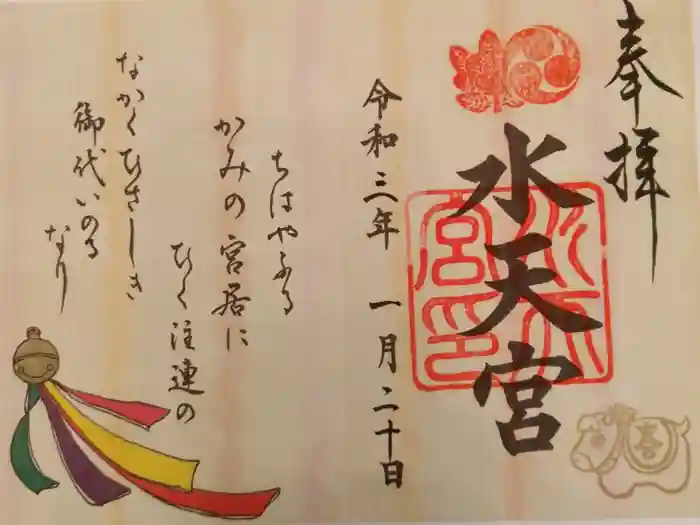 奉拝
水天宮
水天宮印
令和三年 一月二十日
ちはやふる
かみの宮居に
ひく注連の
なかくひさしき
御代いのる
なり